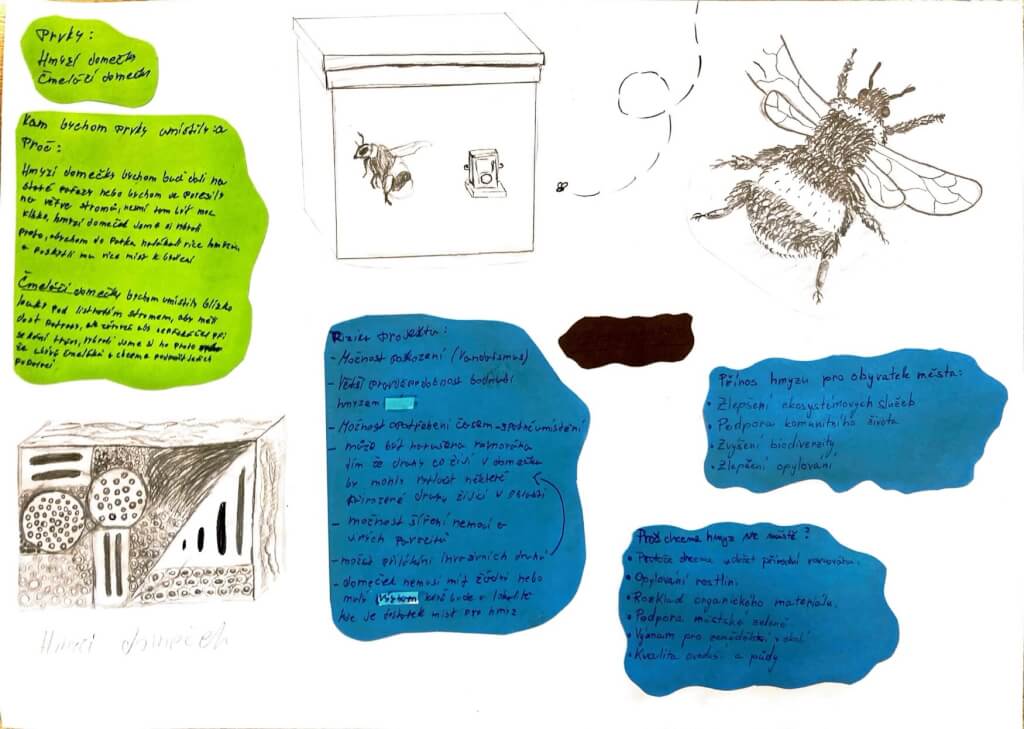 Prvky:
Hmyzí domečky
Čmeláčí domečky
Kam bychom prvky umístily a
Proč:
Hmyzí domečky bychom buď dali na
staré pařezy nebo bychom je pověsily
na větve stromů, nesmí tam být moc
, hmyzí domeček jsme si vybrali
proto, abychom do Parku nalákali více hmyzu
a poskytli mu více míst k bydlení
Čmeláčí domečky bychom umístily blízko
louky pod listnatým stromem, aby měli
dost potravy, ale zároveň
sekání trávy, vybrali jsme si ho proto
že ubývá čmeláků a chceme podpořit jejich
Hmyzí domeček
Rizika projektu:
- Možnost poškození (Vandalismus)
- Větší pravděpodobnost bodnutí
hmyzem
- Možnost opotřebení časem - špatné umístění
- může být narušena rovnováha
tím že druhy co žijí v domečku
by mohly vytlačit některé
přirozené druhy žijící v
- možnost šíření nemocí a
- možné přilákání invazivních druhů
- domeček nemusí mít žádný nebo
malý význam když bude v lokalitě
kde je dostatek míst pro hmyz
Přínos hmyzu pro obyvatele města:
• Zlepšení ekosystémových služeb
• Podpora komunitního života
• Zvýšení biodiverzity
• Zlepšení opylování
Proč chceme hmyz ve městě?
• Protože chceme udržet přírodní rovnováhu.
• Opylování rostlin.
• Rozklad organického materiálu.
• Podpora městské zeleně
• Význam pro zemědělství v okolí
• Kvalita ovzduší a půdy